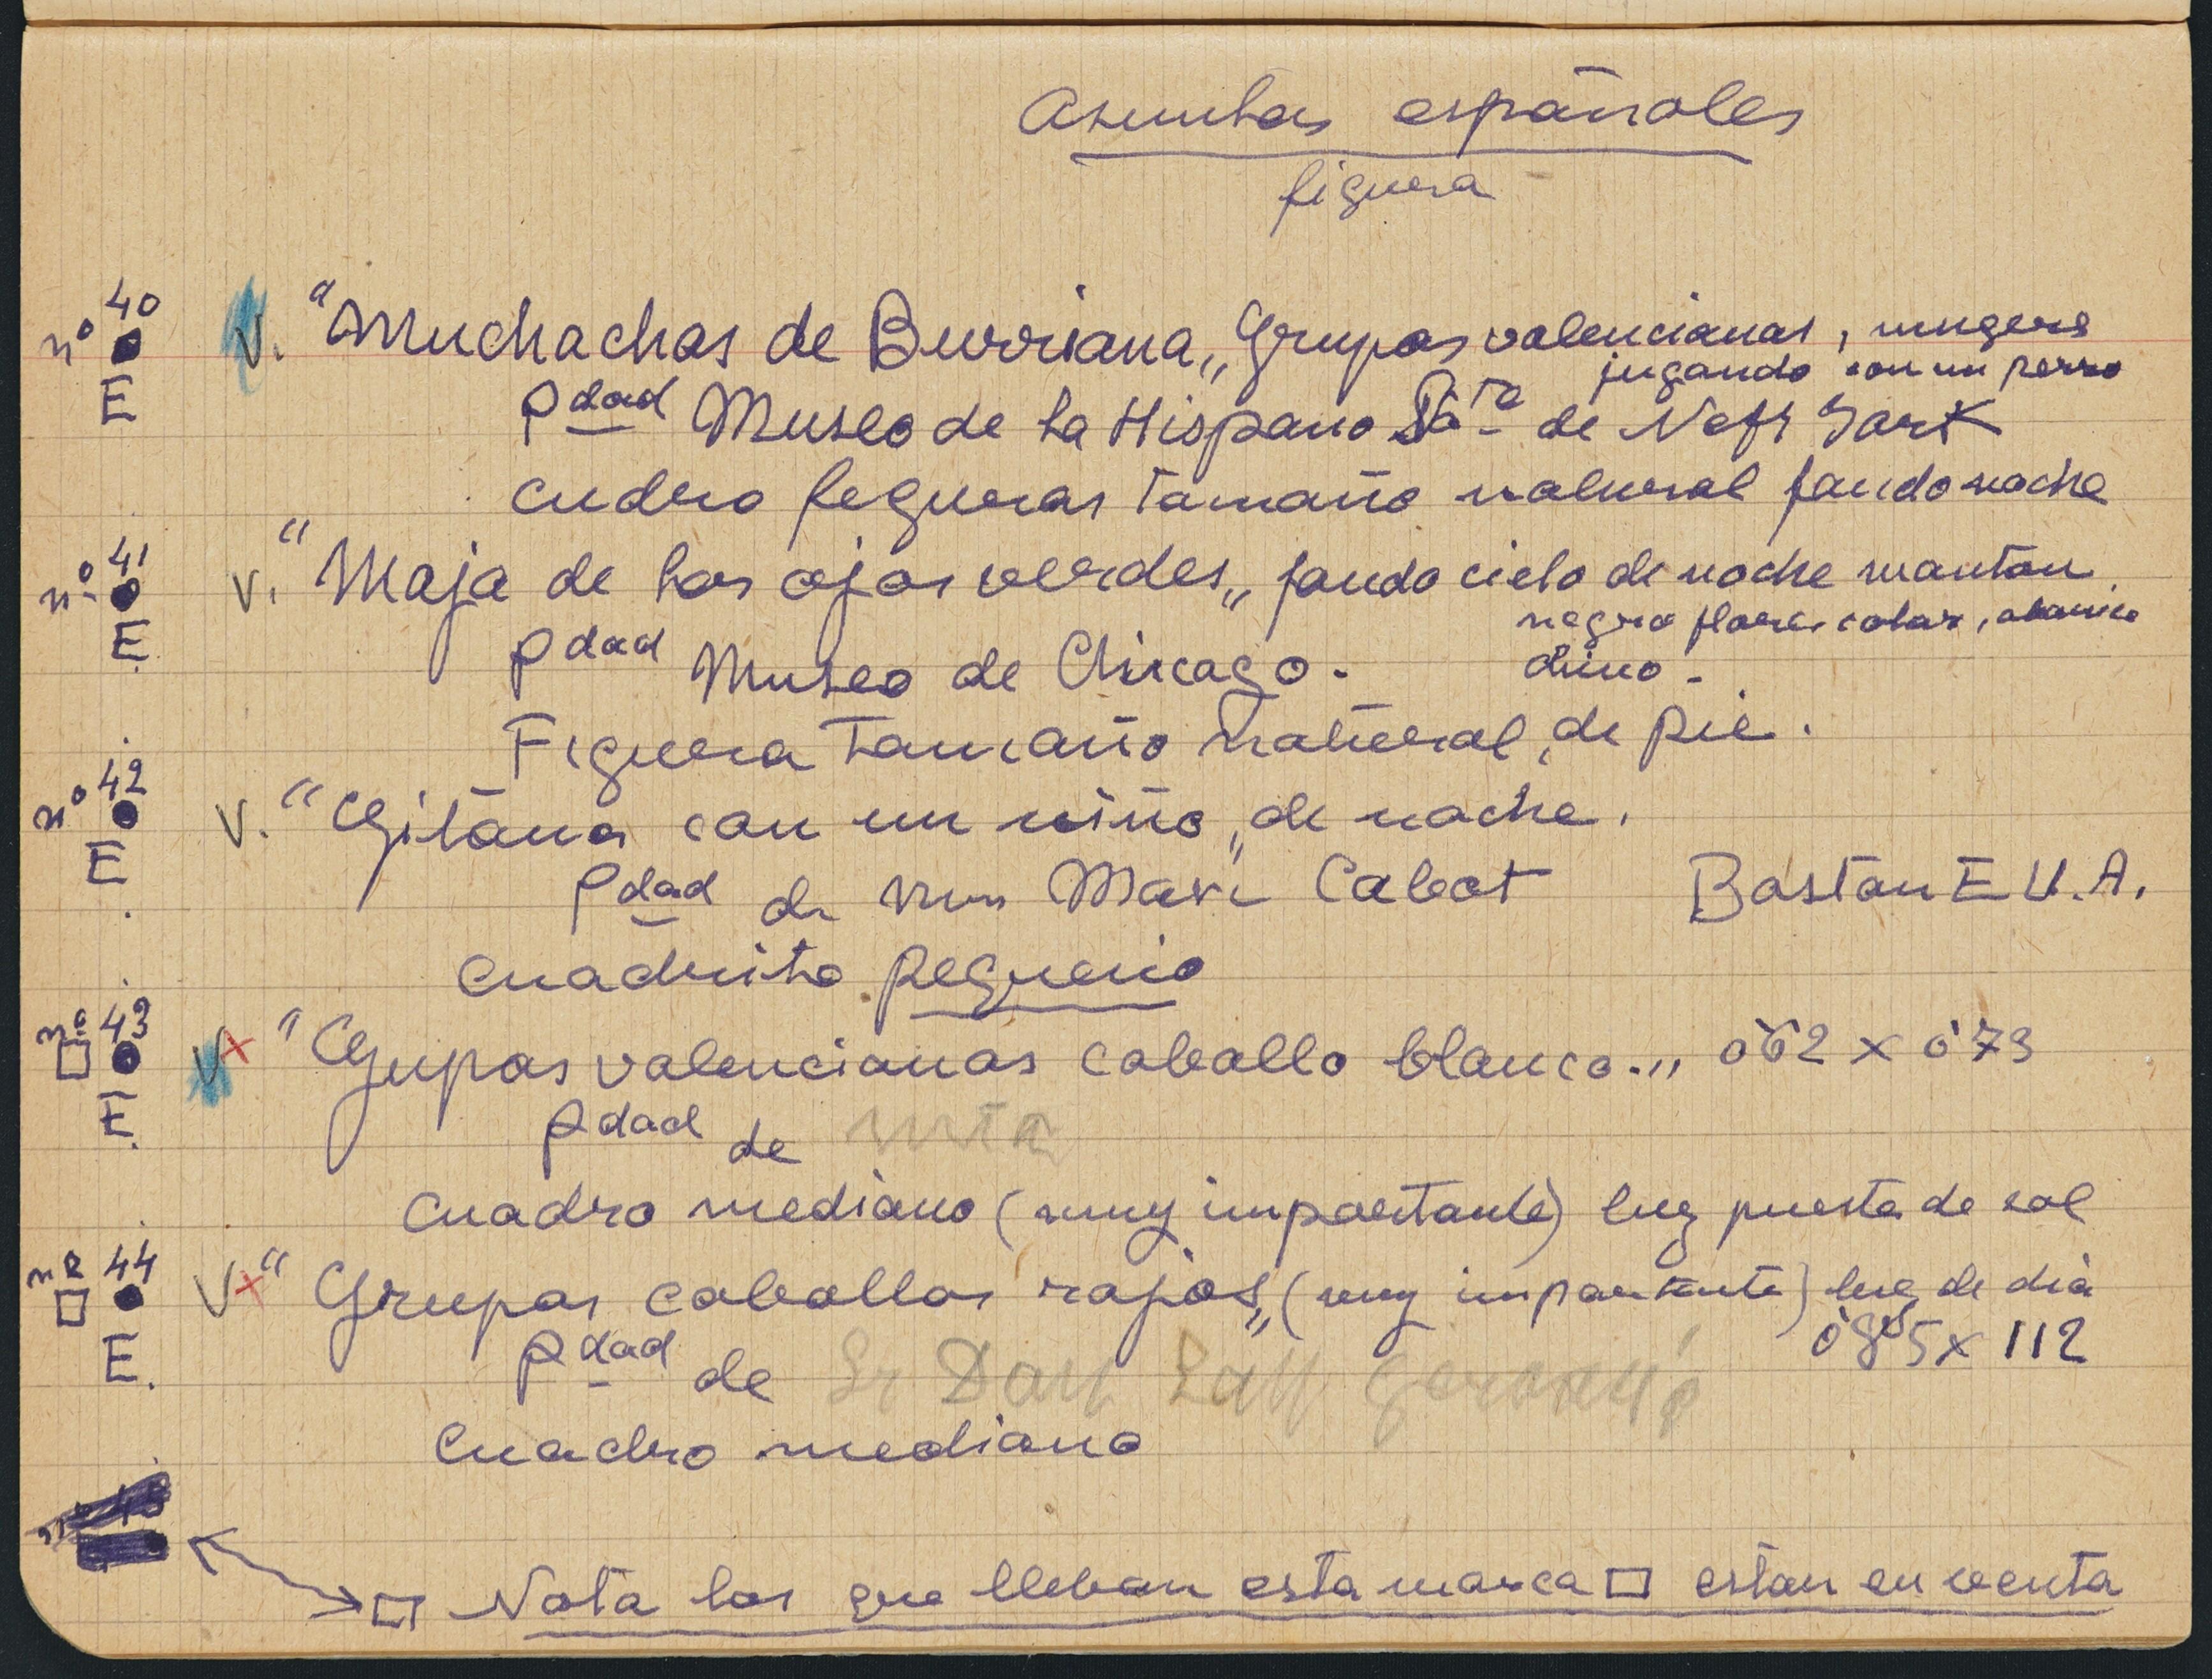 Asuntos españoles
figura
nº 40 E V. "Muchachas de Burriana„ Grupas valencianas, mugeres
jugando con un perro
Pdad Museo de la Hispano de
cudro feguras tamaño natural fondo noche
nº 41 E. V. "Maja de los ojos verdes„ fondo cielo de noche manton
negro flores color, abanico
chino -
Pdad Museo de Chicago.
Figura tamaño natural, de pie.
nº 42 E V. "Gitana con un niño„ de noche.
Pdad de Cabot Boston E U.A.
cuadrito pequeño
nº 43 □ E. Vx "Grupas valencianas caballo blanco.„ 0'62 x 0'73
Pdad de mia
cuadro mediano (muy importante) luz puesta de sol
nº 44 □ E. Vx "Grupas caballos rojos„ (muy importante) luz de dia
0'85 x 112
Pdad de Sr
Cuadro mediano
□ Nota los que lleban esta marca □ estan en venta